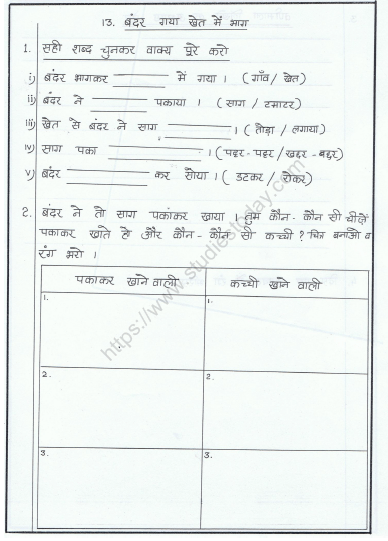 13. बंदर गया खेत में भाग
1. सही शब्द चुनकर वाक्य पूरे करो
i) बंदर भागकर ________ में गया । ( गाँव / खेत )
ii) बंदर ने ________ पकाया । ( साग / टमाटर )
iii) खेत से बंदर ने साग ________ । ( तोड़ा / लगाया )
iv) साग पका ________ । ( पट्टर - पट्टर / खद्दर - बद्दर )
v) बंदर ________ कर सोया । ( डटकर / रोकर )
2. बंदर ने तो साग पकाकर खाया । तुम कौन - कौन सी चीजें
पकाकर खाते हो और कौन - कौन सी कच्ची ? चित्र बनाओ व
रंग भरो ।
पकाकर खाने वाली कच्ची खाने वाली
1. 1.
2. 2.
3. 3.
https://www.studiestoday.com